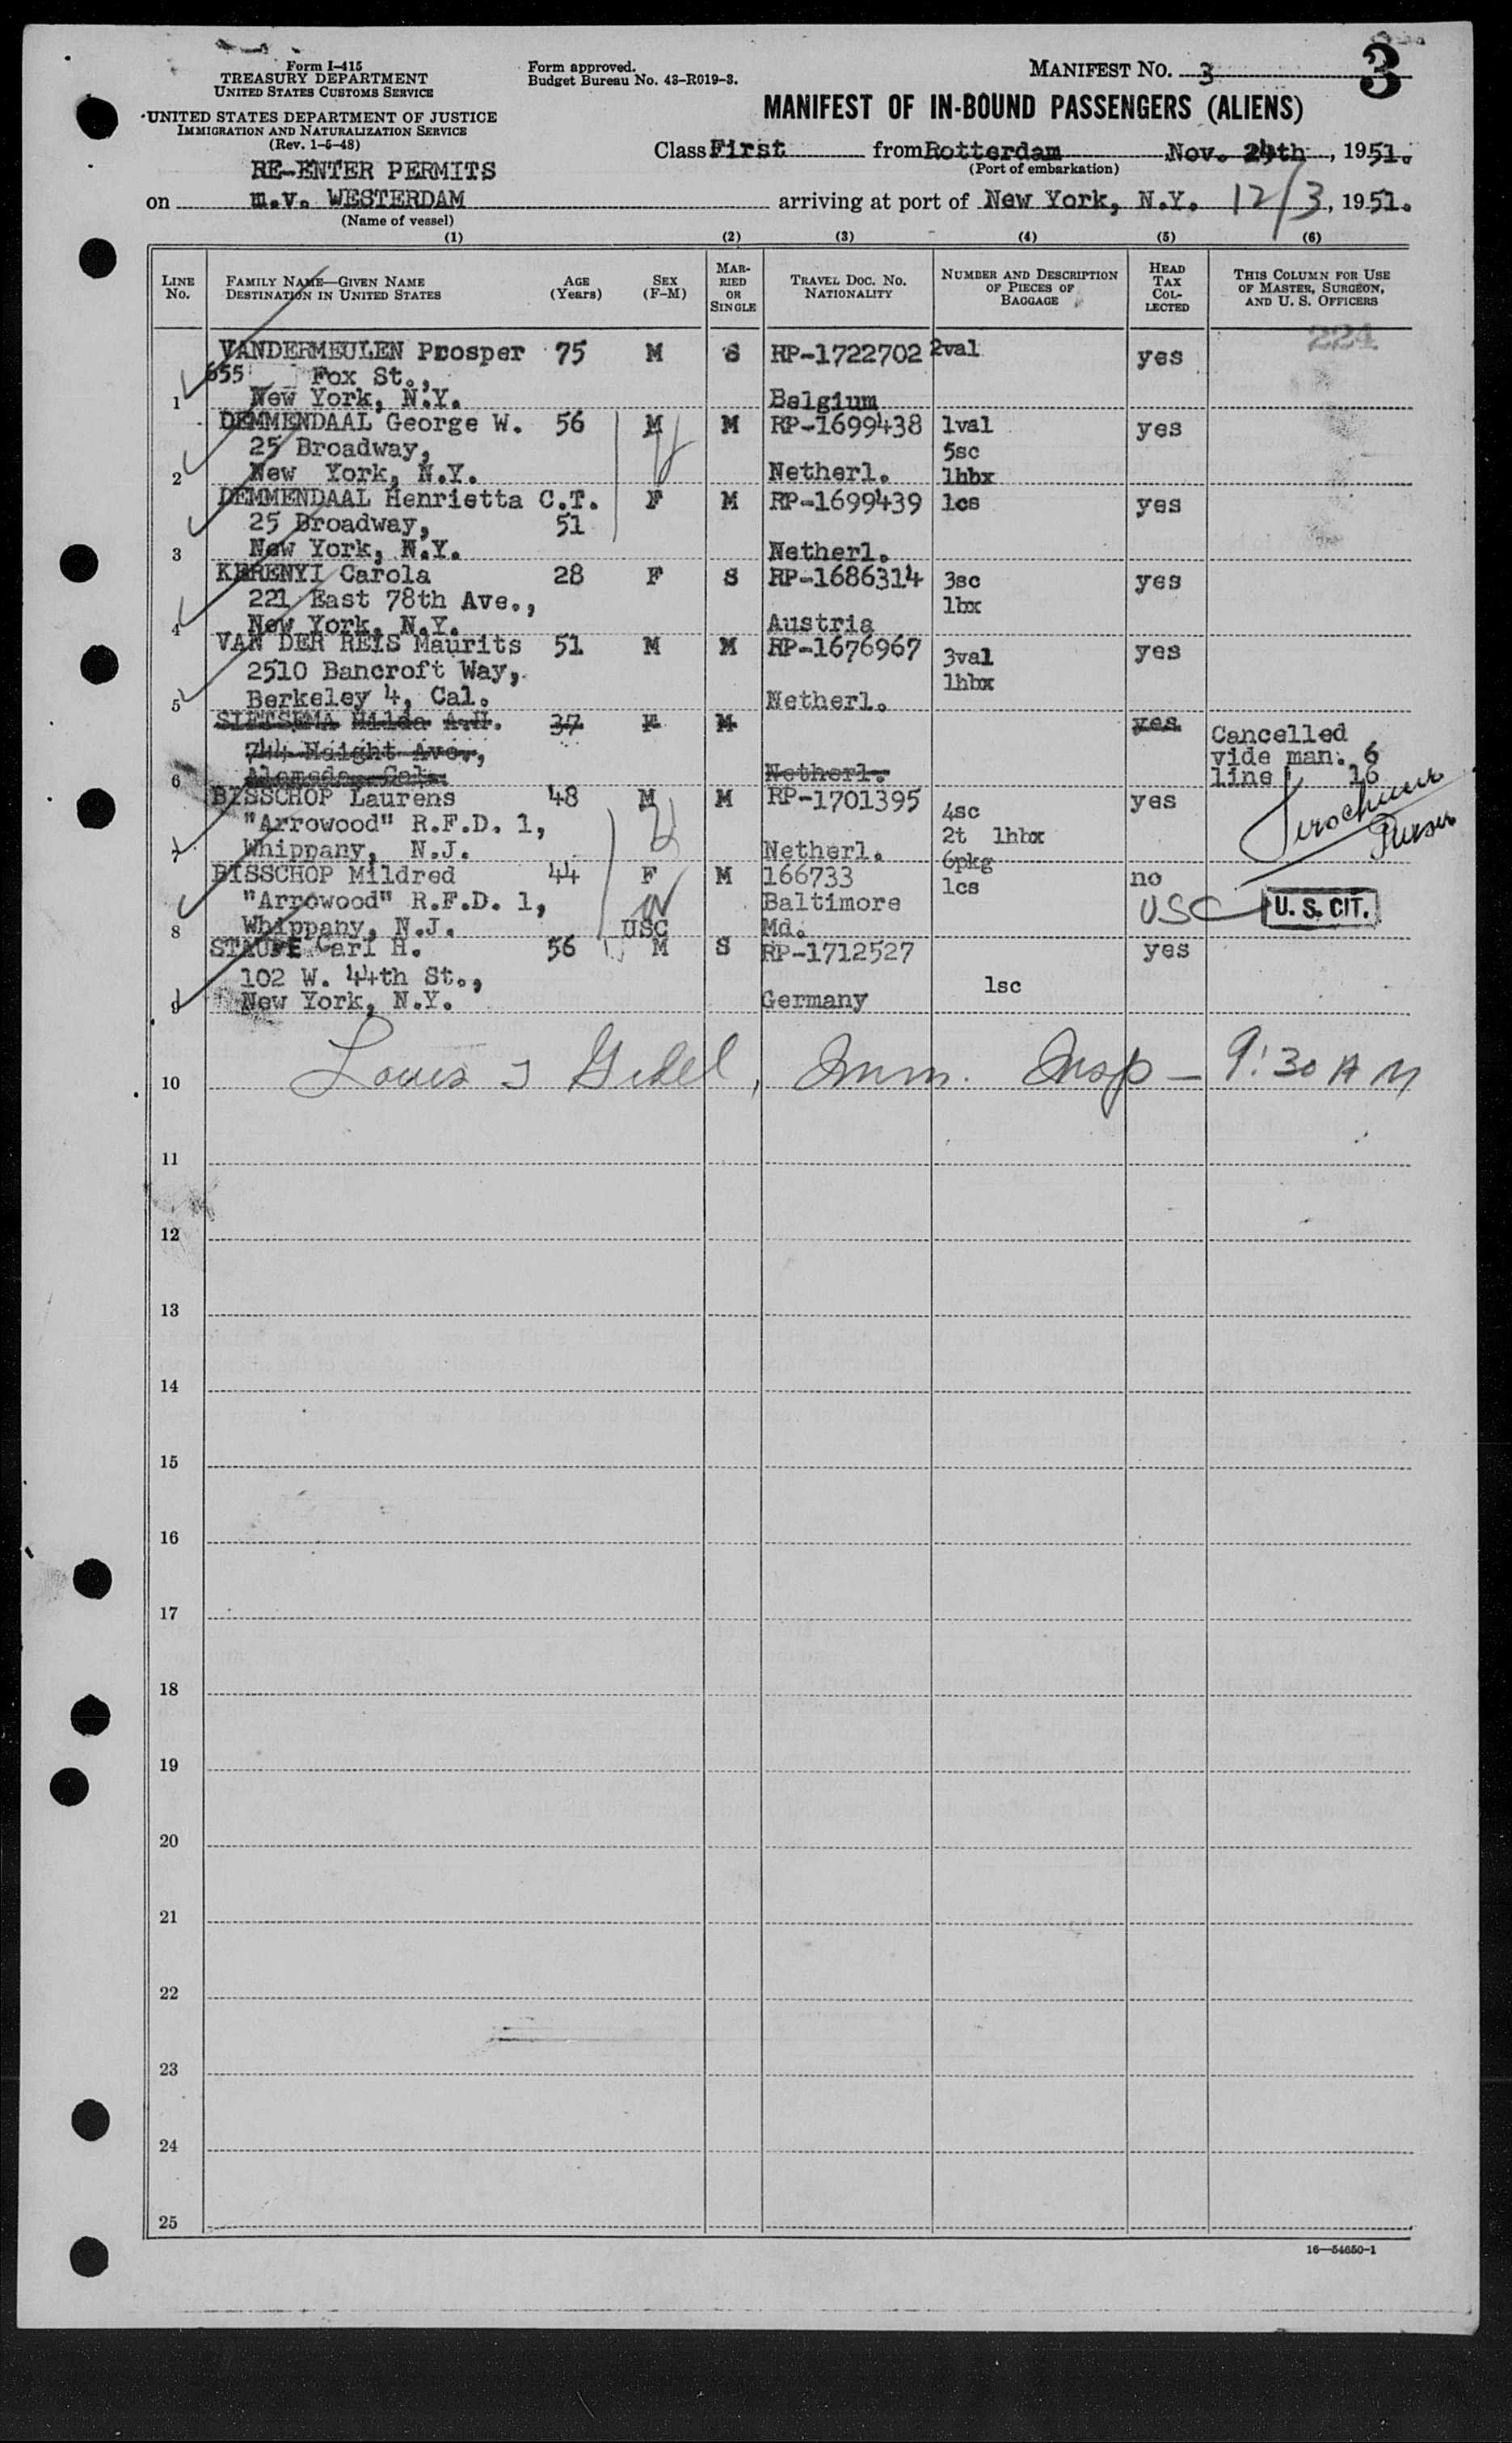 Form I-415
TREASURY DEPARTMENT
UNITED STATES CUSTOMS SERVICE
UNITED STATES DEPARTMENT OF JUSTICE
IMMIGRATION AND NATURALIZATION SERVICE
(Rev. 1-5-48)
Form approved.
Budget Bureau No. 43-R019-3.
MANIFEST NO. 3
3
MANIFEST OF IN-BOUND PASSENGERS (ALIENS)
Class First from Rotterdam Nov. 24th, 1951.
(Port of embarkation)
RE-ENTER PERMITS
on m.v. WESTERDAM arriving at port of New York, N.Y. 12/3, 1951.
(Name of vessel)
(1) (2) (3) (4) (5) (6)
LINE No.
FAMILY NAME—GIVEN NAME
DESTINATION IN UNITED STATES
AGE (Years)
SEX (F-M)
MARRIED OR SINGLE
TRAVEL DOC. NO. NATIONALITY
NUMBER AND DESCRIPTION OF PIECES OF BAGGAGE
HEAD TAX COLLECTED
THIS COLUMN FOR USE OF MASTER, SURGEON, AND U. S. OFFICERS
224
VANDERMEULEN Prosper 75 M S RP-1722702 2val yes
655 Fox St.,
1 New York, N.Y. Belgium
DEMMENDAAL George W. 56 M M RP-1699438 1val yes
25 Broadway, 5sc
2 New York, N.Y. Netherl. 1hbx
DEMMENDAAL Henrietta C.T. F M RP-1699439 1cs yes
25 Broadway, 51
3 New York, N.Y. Netherl.
KERENYI Carola 28 F S RP-1686314 3sc yes
221 East 78th Ave., 1bx
4 New York, N.Y. Austria
VAN DER REIS Maurits 51 M M RP-1676967 3val yes
2510 Bancroft Way, 1hbx
5 Berkeley 4, Cal. Netherl.
SIETSEMA Hilda A.H. 37 F M yes Cancelled
744 Haight Ave., vide man. 6
6 Alameda, Cal. Netherl. line 16
BISSCHOP Laurens 48 M M RP-1701395 4sc yes
"Arrowood" R.F.D. 1, 2t 1hbx
7 Whippany, N.J. Netherl. 6pkg
Purser
BISSCHOP Mildred 44 F M 166733 1cs no
"Arrowood" R.F.D. 1, Baltimore USC U. S. CIT.
8 Whippany, N.J. USC Md.
STAUFE Carl H. 56 M S RP-1712527 yes
102 W. 44th St., 1sc
9 New York, N.Y. Germany
10 Louis J Gidel, Imm. Insp — 9:30 AM
11
12
13
14
15
16
17
18
19
20
21
22
23
24
25
16—54650-1